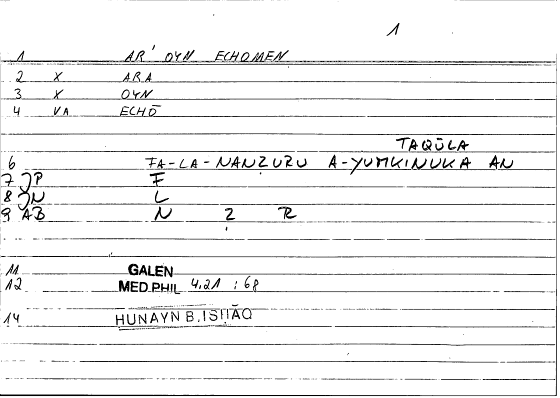 1
1 AR' OYN ECHOMEN
2 X ARA
3 X OYN
4 VA ECHŌ
TAQŪLA
6 FA-LA-NANZURU A-YUMKINUKA AN
7 JP F
8 JN L
9 AB N Z R
11 GALEN
12 MED.PHIL 4.21 : 68
14 HUNAYN B. ISHĀQ